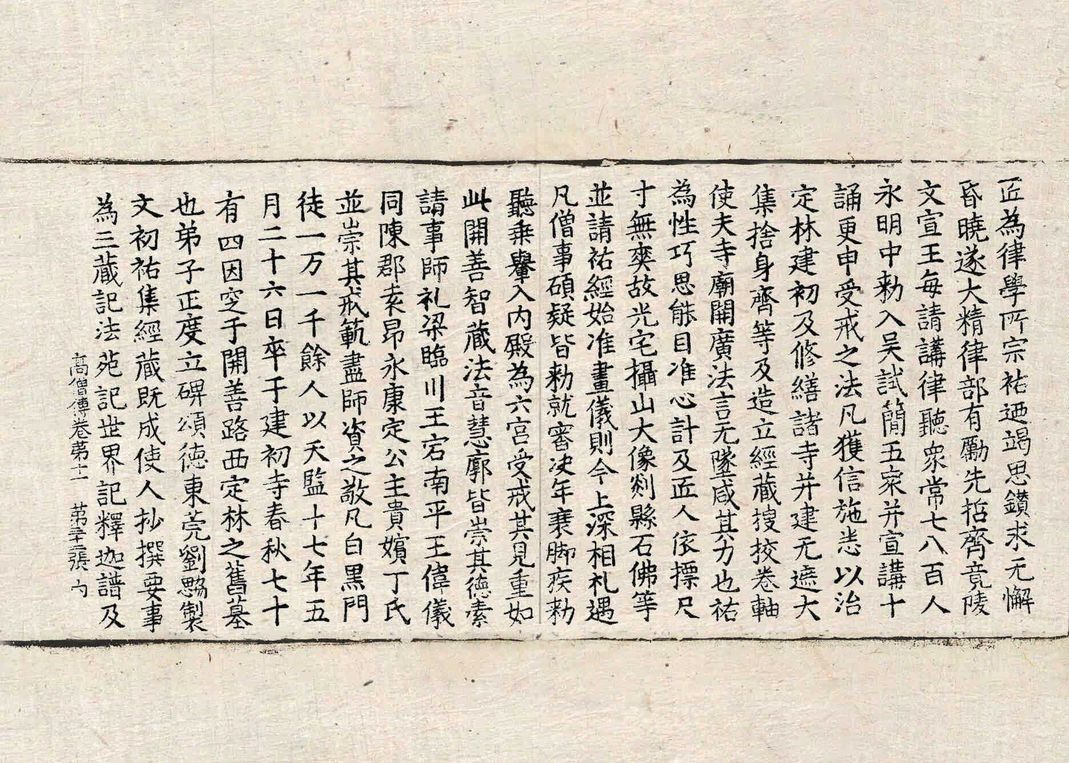 匠為律學所宗祐迺竭思鑚求无懈
昏曉遂大精律部有勵先哲齊竟陵
文宣王每請講律聽衆常七八百人
永明中勑入吴試簡五衆并宣講十
誦更申受戒之法凡獲信施悉以治
定林建初及修繕諸寺并建无遮大
集捨身齊等及造立經藏搜挍卷軸
使夫寺廟開廣法言无墜咸其力也祐
為性巧思能目准心計及匠人依摽尺
寸無爽故光宅攝山大像剡縣石佛等
並請祐經始准畫儀則今上深相礼遇
凡僧事碩疑皆勑就審決年衰脚疾勑
聽乗轝入内殿為六宮受戒其見重如
此開善智藏法音慧廓皆崇其德素
請事師礼梁臨川王宕南平王偉儀
同陳郡袁昂永康定公主貴嬪丁氏
並崇其戒範盡師資之敬凡白黑門
徒一万一千餘人以天監十七年五
月二十六日卒于建初寺春秋七十
有四因窆于開善路西定林之舊墓
也弟子正度立碑頌德東莞劉勰製
文初祐集經藏既成使人抄撰要事
為三藏記法苑記世界記釋迦譜及
髙僧傳卷第十一 第 張 内